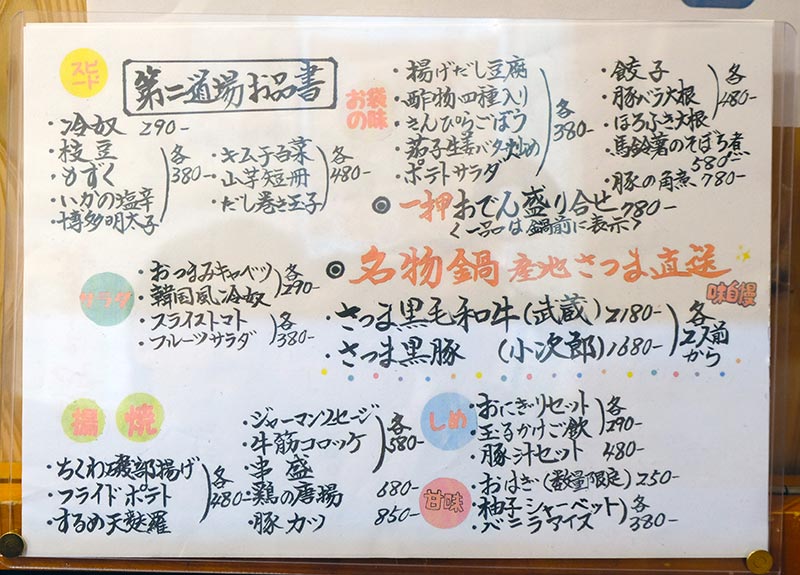 スピード
第二道場お品書
・冷奴 290-
・枝豆
・もずく
・イカの塩辛
・博多明太子
各380-
・キムチ白菜
・山芋短冊
・だし巻き玉子
各480-
お袋の味
・揚げだし豆腐
・酢物四種入り
・きんぴらごぼう
・茄子生姜バター炒め
・ポテトサラダ
各380-
・餃子
・豚バラ大根
・ほろふき大根
各480-
・馬鈴薯のそぼろ煮
580-
・豚の角煮 780-
◎一押おでん盛り合せ 780-
〈一品は鍋前に表示〉
サラダ
・おつまみキャベツ
・韓国風冷奴
各290-
・スライストマト
・フルーツサラダ
各380-
◎名物鍋 産地さつま直送
味自慢
・さつま黒毛和牛(武蔵)2180-
・さつま黒豚 (小次郎)1680-
各2人前から
揚 焼
・ちくわ磯部揚げ
・フライドポテト
・するめ天麩羅
各480-
・ジャーマンソセージ
・牛筋コロッケ
各580-
・串盛
・鶏の唐揚 680-
・豚カツ 850-
しめ
・おにぎりセット
・玉子かけご飯
各290-
・豚汁セット 480-
甘味
・おはぎ(数量限定) 250-
・柚子シャーベット
・バニラアイス
各380-